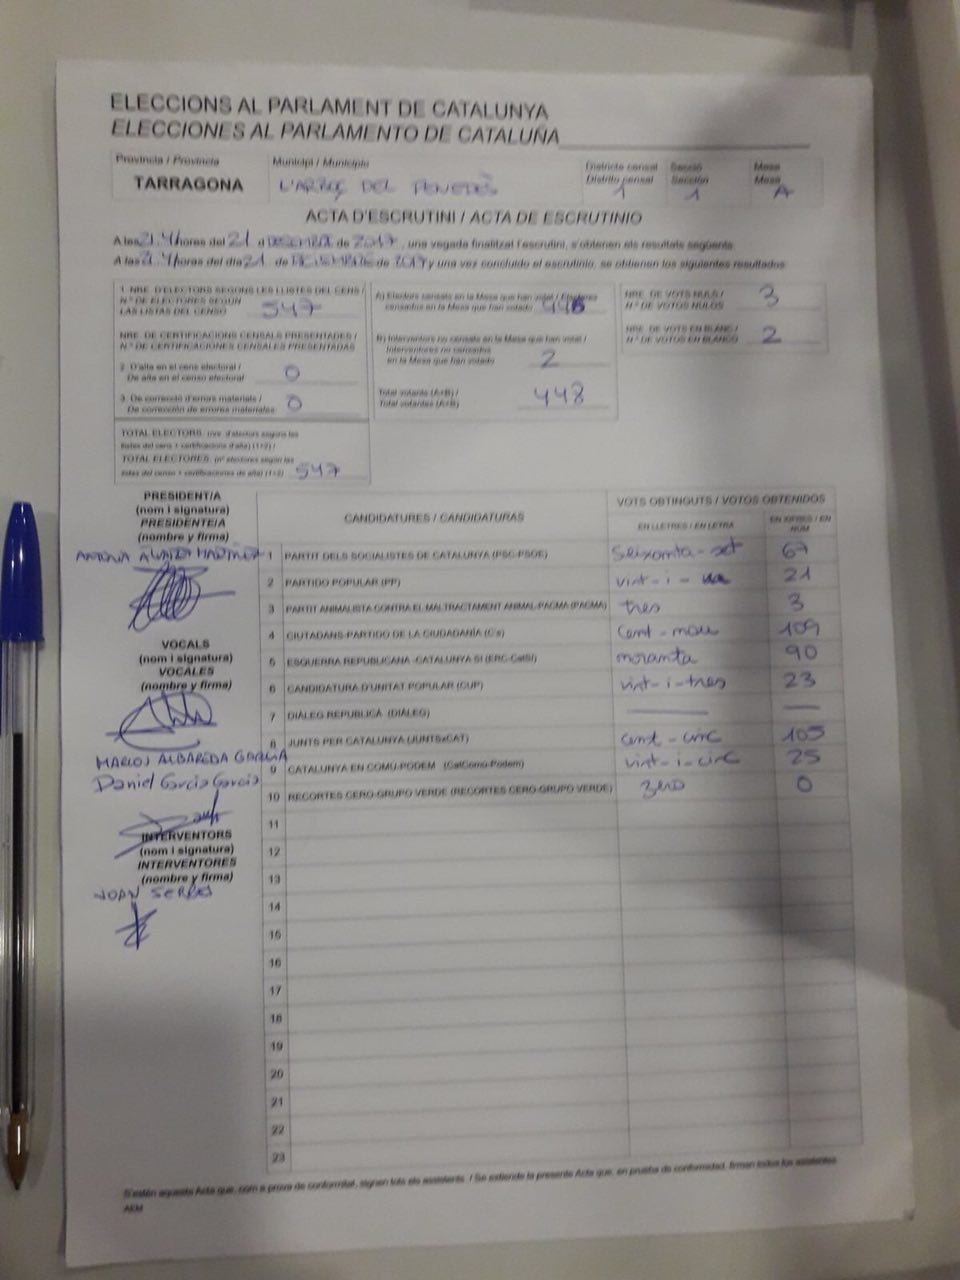 ELECCIONS AL PARLAMENT DE CATALUNYA
ELECCIONES AL PARLAMENTO DE CATALUÑA
Provincia / Provincia
TARRAGONA
Municipi / Municipio
L'ARBOÇ DEL PENEDÈS
Districte censal
Distrito censal
1
Secció
Sección
1
Mesa
Mesa
A
ACTA D'ESCRUTINI / ACTA DE ESCRUTINIO
A les 21.4 hores del 21 d DESEMBRE de 2017, una vegada finalitzat l'escrutini, s'obtenen els resultats següents:
A las 21.4 horas del día 21 de DICIEMBRE de 2017 y una vez concluido el escrutinio, se obtienen los siguientes resultados:
1. NRE. D'ELECTORS SEGONS LES LLISTES DEL CENS /
N.º DE ELECTORES SEGÚN
LAS LISTAS DEL CENSO 547
NRE. DE CERTIFICACIONS CENSALS PRESENTADES /
N.º DE CERTIFICACIONES CENSALES PRESENTADAS
2. D'alta en el cens electoral /
De alta en el censo electoral 0
3. De correcció d'errors materials /
De corrección de errores materiales 0
TOTAL ELECTORS: (nre. d'electors segons les
llistes del cens + certificacions d'alta) (1+2) /
TOTAL ELECTORES: (nº electores según las
listas del censo + certificaciones de alta) (1+2) 547
A) Electors censats en la Mesa que han votat / Electores
censados en la Mesa que han votado 446
B) Interventors no censats en la Mesa que han votat /
Interventores no censados
en la Mesa que han votado 2
Total votants (A+B) /
Total votantes (A+B) 448
NRE. DE VOTS NULS /
N.º DE VOTOS NULOS 3
NRE. DE VOTS EN BLANC /
N.º DE VOTOS EN BLANCO 2
PRESIDENT/A
(nom i signatura)
PRESIDENTE/A
(nombre y firma)
VOCALS
(nom i signatura)
VOCALES
(nombre y firma)
ALBAREDA GARCIA
Daniel Garcia Garcia
INTERVENTORS
(nom i signatura)
INTERVENTORES
(nombre y firma)
JOAN
CANDIDATURES / CANDIDATURAS
VOTS OBTINGUTS / VOTOS OBTENIDOS
EN LLETRES / EN LETRA
EN XIFRES / EN NÚM
1 PARTIT DELS SOCIALISTES DE CATALUNYA (PSC-PSOE) seixanta-set 67
2 PARTIDO POPULAR (PP) vint-i-un 21
3 PARTIT ANIMALISTA CONTRA EL MALTRACTAMENT ANIMAL-PACMA (PACMA) tres 3
4 CIUTADANS-PARTIDO DE LA CIUDADANÍA (C's) cent-nou 109
5 ESQUERRA REPUBLICANA -CATALUNYA SÍ (ERC-CatSí) noranta 90
6 CANDIDATURA D'UNITAT POPULAR (CUP) vint-i-tres 23
7 DIÀLEG REPUBLICÀ (DIÀLEG)
8 JUNTS PER CATALUNYA (JUNTSxCAT) cent-cinc 105
9 CATALUNYA EN COMÚ-PODEM (CatComú-Podem) vint-i-cinc 25
10 RECORTES CERO-GRUPO VERDE (RECORTES CERO-GRUPO VERDE) zero 0
11
12
13
14
15
16
17
18
19
20
21
22
23
S'estén aquesta Acta que, com a prova de conformitat, signen tots els assistents. / Se extiende la presente Acta que, en prueba de conformidad, firman todos los asistentes.